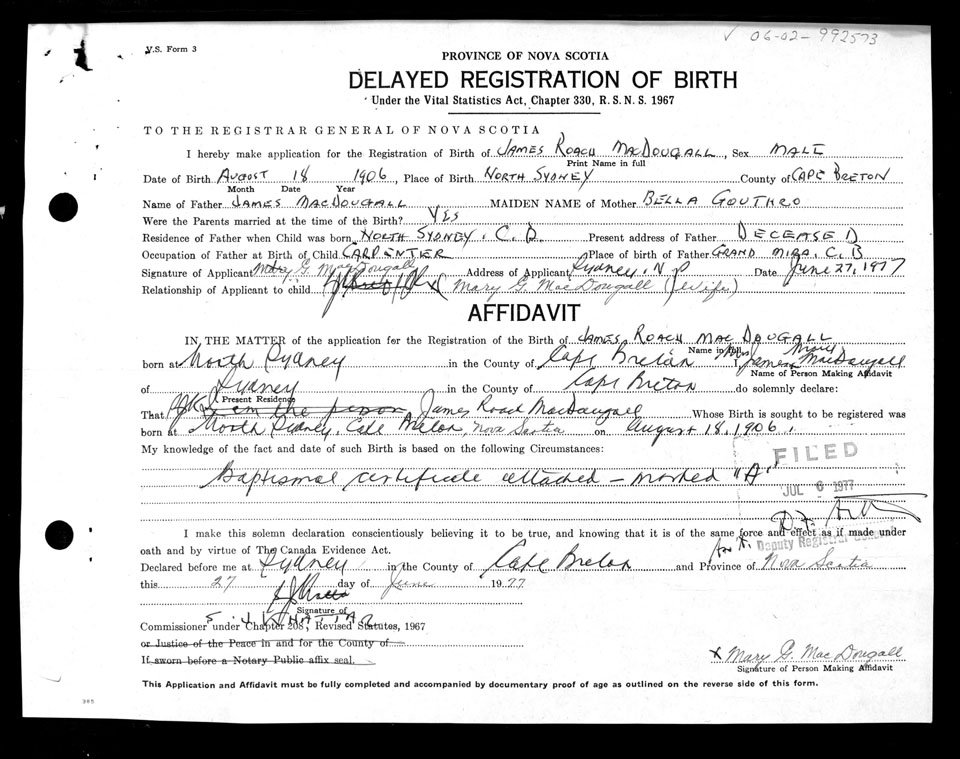 ✓ 06-02-992573
V.S. Form 3
PROVINCE OF NOVA SCOTIA
DELAYED REGISTRATION OF BIRTH
Under the Vital Statistics Act, Chapter 330, R.S.N.S. 1967
TO THE REGISTRAR GENERAL OF NOVA SCOTIA
I hereby make application for the Registration of Birth of JAMES ROACH MACDOUGALL, Sex MALE
Print Name in full
Date of Birth AUGUST 18 1906, Place of Birth NORTH SYDNEY County of CAPE BRETON
Month Date Year
Name of Father JAMES MACDOUGALL MAIDEN NAME of Mother BELLA GOUTHRO
Were the Parents married at the time of the Birth? YES
Residence of Father when Child was born NORTH SYDNEY. C.B. Present address of Father DECEASED
Occupation of Father at Birth of Child CARPENTER Place of birth of Father GRAND MIRA, C.B
Signature of Applicant Mary G. MacDougall Address of Applicant Sydney, N.S. Date June 27, 1977
Relationship of Applicant to child Mary G. MacDougall (wife)
AFFIDAVIT
IN THE MATTER of the application for the Registration of the Birth of JAMES ROACH MACDOUGALL
Name in full
born at North Sydney in the County of Cape Breton I, Mrs James MacDougall
Name of Person Making Affidavit
of Sydney in the County of Cape Breton do solemnly declare:
Present Residence
That I am the person James Roach MacDougall Whose Birth is sought to be registered was
born at North Sydney, Cape Breton, Nova Scotia on August 18, 1906.
My knowledge of the fact and date of such Birth is based on the following Circumstances:
FILED
Baptismal certificate attached – marked "A"
JUL 6 1977
I make this solemn declaration conscientiously believing it to be true, and knowing that it is of the same force and effect as if made under
oath and by virtue of The Canada Evidence Act.
Deputy Registrar General
Declared before me at Sydney in the County of Cape Breton and Province of Nova Scotia
this 27 day of June 1977
Signature of
Commissioner under Chapter 208, Revised Statutes, 1967
or Justice of the Peace in and for the County of
If sworn before a Notary Public affix seal.
x Mary G. MacDougall
Signature of Person Making Affidavit
This Application and Affidavit must be fully completed and accompanied by documentary proof of age as outlined on the reverse side of this form.
365